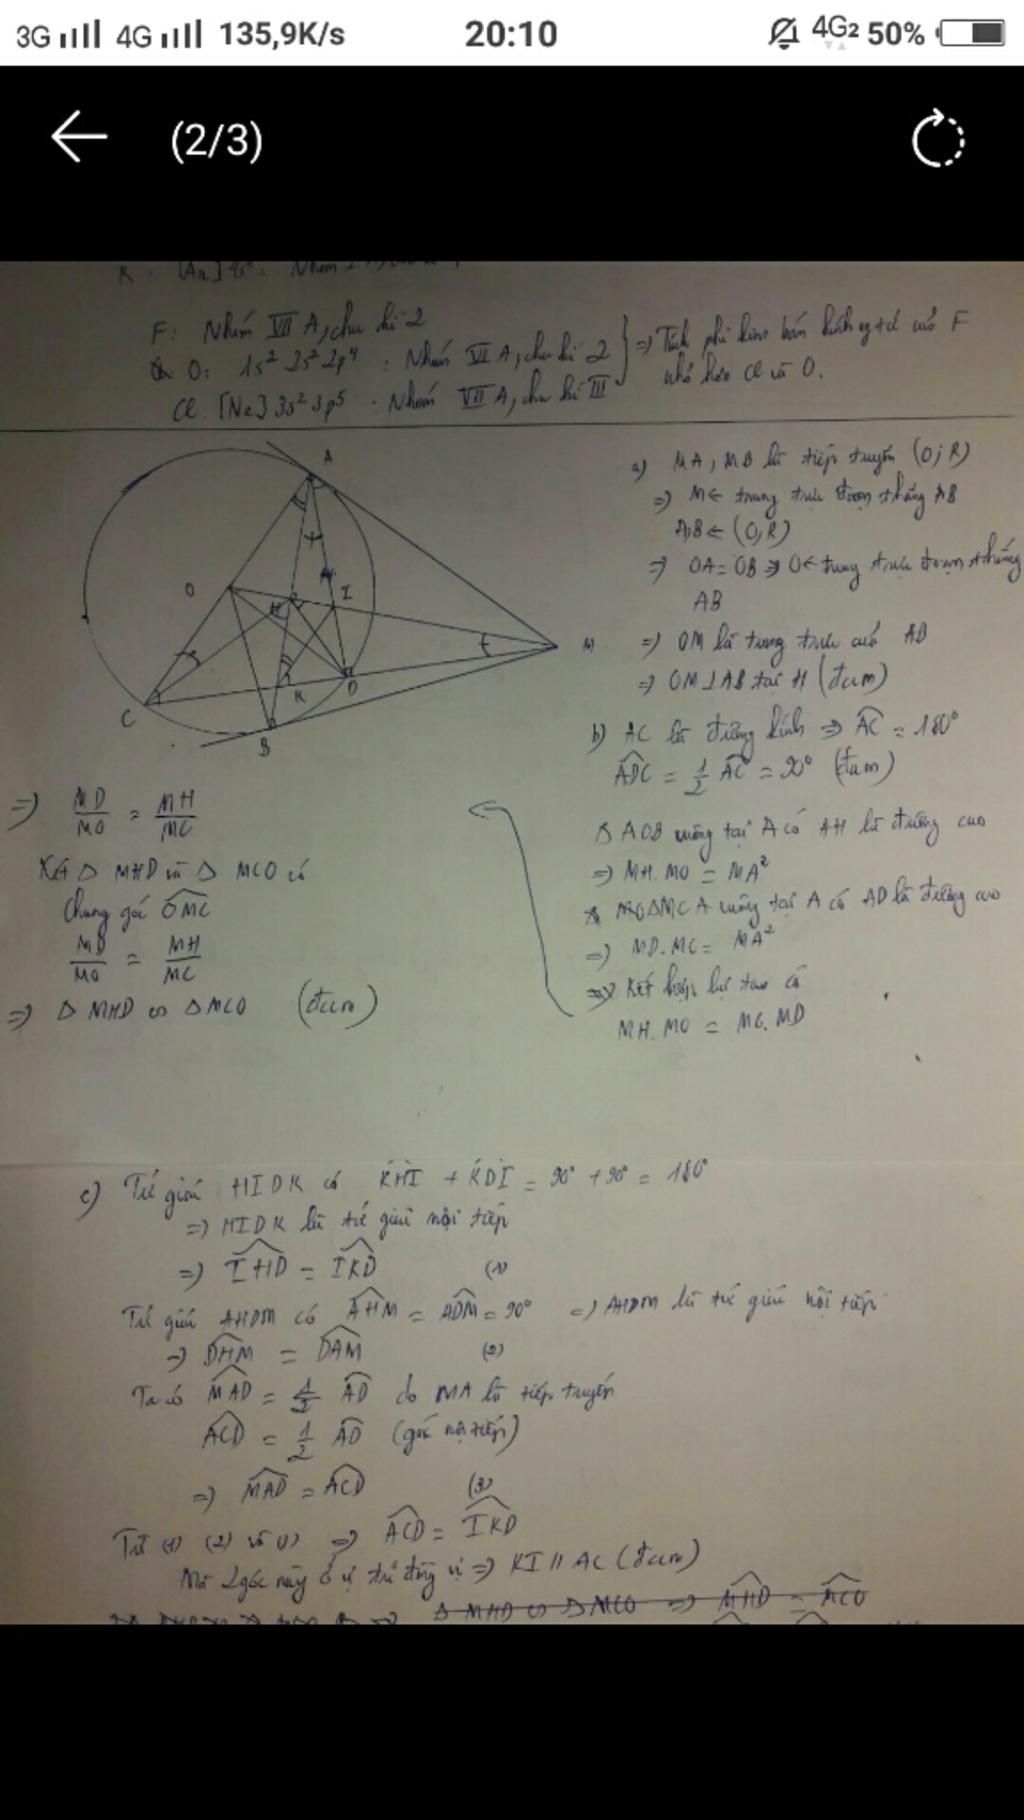 3G 4G 135,9K/s 20:10 4G2 50%
(2/3)
F: Nhóm VII A, chu kì 2
O: 1s² 2s² 2p⁴ : Nhóm VI A, chu kì 2
Cl: [Ne] 3s² 3p⁵ : Nhóm VII A, chu kì III
=> Tính phi kim bán kính ng tử của F
nhỏ hơn Cl và O.
A
O
H
I
M
C
K
D
B
a) MA, MB là tiếp tuyến (O; R)
=> M ∈ trung trực đoạn thẳng AB
A, B ∈ (O, R)
=> OA = OB => O ∈ trung trực đoạn thẳng
AB
=> OM là trung trực của AB
=> OM ⊥ AB tại H (đcm)
b) AC là đường kính => AC = 180°
ADC = 1/2 AC = 90° (đcm)
Δ AOB vuông tại A có AH là đường cao
=> MH. MO = MA²
ΔMCA vuông tại A có AD là đường cao
=> MD. MC = MA²
=> Kết hợp lại ta có
MH. MO = MC. MD
=> MD/MO = MH/MC
Xét Δ MHD và Δ MCO có
Chung góc OMC
MD/MO = MH/MC
=> Δ MHD ∽ Δ MCO (đcm)
c) Tứ giác HIDK có KHI + KDI = 90° + 90° = 180°
=> HIDK là tứ giác nội tiếp
=> IHD = IKD (1)
Tứ giác AHDM có AHM = ADM = 90° => AHDM là tứ giác nội tiếp
=> DHM = DAM (2)
Ta có MAD = 1/2 AD do MA là tiếp tuyến
ACD = 1/2 AD (góc nội tiếp)
=> MAD = ACD (3)
Từ (1) (2) và => ACD = IKD
Mà 2 góc này ở vị trí đồng vị => KI // AC (đcm)
Δ MHD ∽ Δ MCO => MHD = MCO